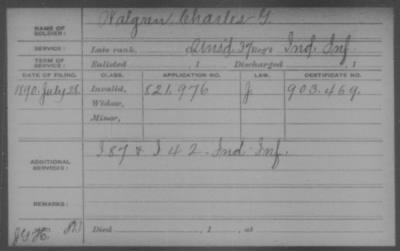 NAME OF SOLDIER: Walgren Charles G.
SERVICE: Late rank, Unsd. 37 Reg't Ind. Inf.
TERM OF SERVICE: Enlisted , 1 Discharged , 1
DATE OF FILING. CLASS. APPLICATION NO. LAW. CERTIFICATE NO.
1890. July 28. Invalid, 821.976 J 903.469.
Widow,
Minor,
ADDITIONAL SERVICES: I 87 & I 42. Ind. Inf.
REMARKS:
Died , 1 , at